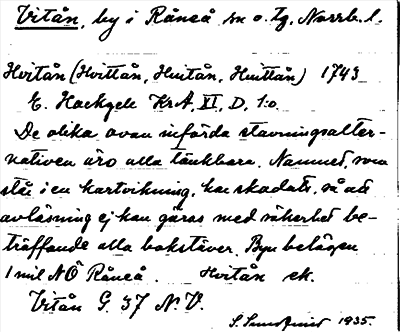 Vitån, by i Råneå sn o. tg. Norrb. l.
Hvitån (Hvittån, Huitån, Huittån) 1743
E. Hackzell KrA, XI, D, 1:o.
De olika ovan införda stavningsalter-
nativen äro alla tänkbara. Namnet, som
står i en kartvikning, har skadats, så att
avläsning ej kan göras med säkerhet be-
träffande alla bokstäver. Byn belägen
1 mil NÖ Råneå. Hvitån ek.
Vitån G. 37 N.V.
S. 1935.